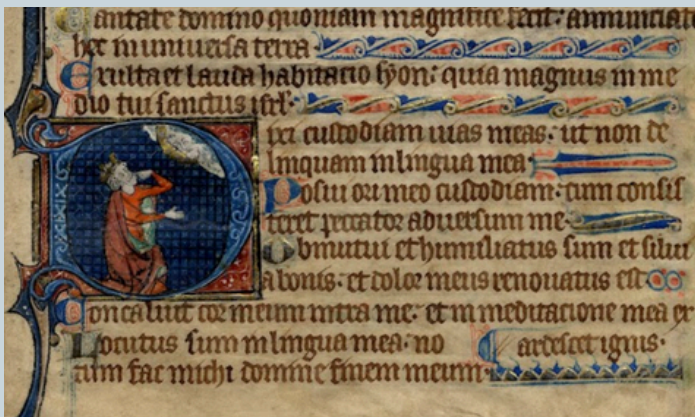 antate domino quoniam magnifice fecit: annunciat
hec in universa terra
Exulta et lauda habitacio syon: quia magnus in me
dio tui sanctus isrl
Dixi custodiam uias meas: ut non de
linquam in lingua mea
Posui ori meo custodiam: cum consis
teret peccator aduersum me
Obmutui et humiliatus sum et silui
a bonis: et dolor meus renouatus est
Concaluit cor meum intra me: et in meditacione mea ex
Locutus sum in lingua mea: no ardescet ignis
tum fac michi domine finem meum